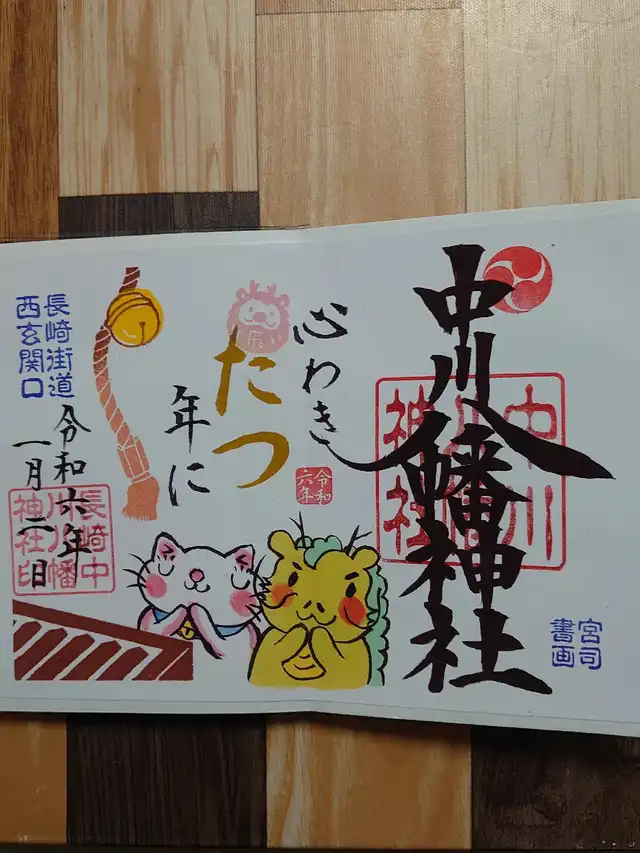 中川八幡神社
中川八幡神社
宮司
書画
心わき
たつ
年に
辰
令和
六年
長崎街道
西玄関口
令和六年
一月二日
長崎中
川八幡
神社印